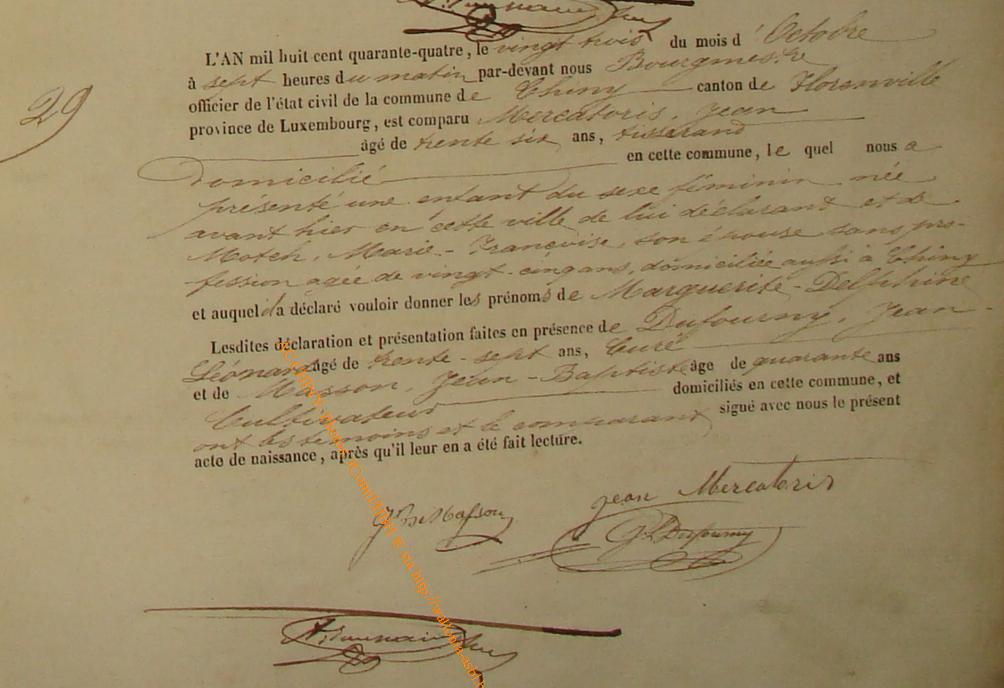 29
L'AN mil huit cent quarante-quatre, le vingt trois du mois d'Octobre
à sept heures du matin par-devant nous Bourgmestre
officier de l'état civil de la commune de Chiny canton de Florenville
province de Luxembourg, est comparu Mercatoris, Jean
âgé de trente six ans, tisserand
domicilié en cette commune, le quel nous a
présenté une enfant du sexe féminin née
avant hier en cette ville de lui déclarant et de
Motch, Marie-Françoise, son épouse sans pro-
fession agée de vingt-cinq ans, domiciliée aussi à Chiny
et auquel il a déclaré vouloir donner les prénoms de Marguerite-Delphine
Lesdites déclaration et présentation faites en présence de Dufourny, Jean-
Léonard âgé de trente-sept ans, Curé
et de Masson, Jean-Baptiste âge de quarante ans
Cultivateur domiciliés en cette commune, et
ont les témoins et le comparant signé avec nous le présent
acte de naissance, après qu'il leur en a été fait lecture.
Jean Mercatoris
JBte Masson
J L Dufourny